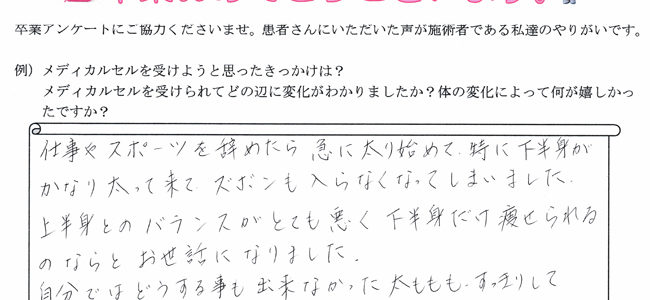 卒業アンケートにご協力くださいませ。患者さんにいただいた声が施術者である私達のやりがいです。
例）メディカルセルを受けようと思ったきっかけは？
メディカルセルを受けられてどの辺に変化がわかりましたか？体の変化によって何が嬉しかっ
たですか？
仕事や スポーツを辞めたら 急に太り始めて、特に下半身が
かなり太って来て ズボンも入らなくなってしまいました。
上半身とのバランスがとても悪く 下半身だけ痩せられる
のならと お世話になりました。
自分ではどうする事も出来なかった太ももも、すっきりして